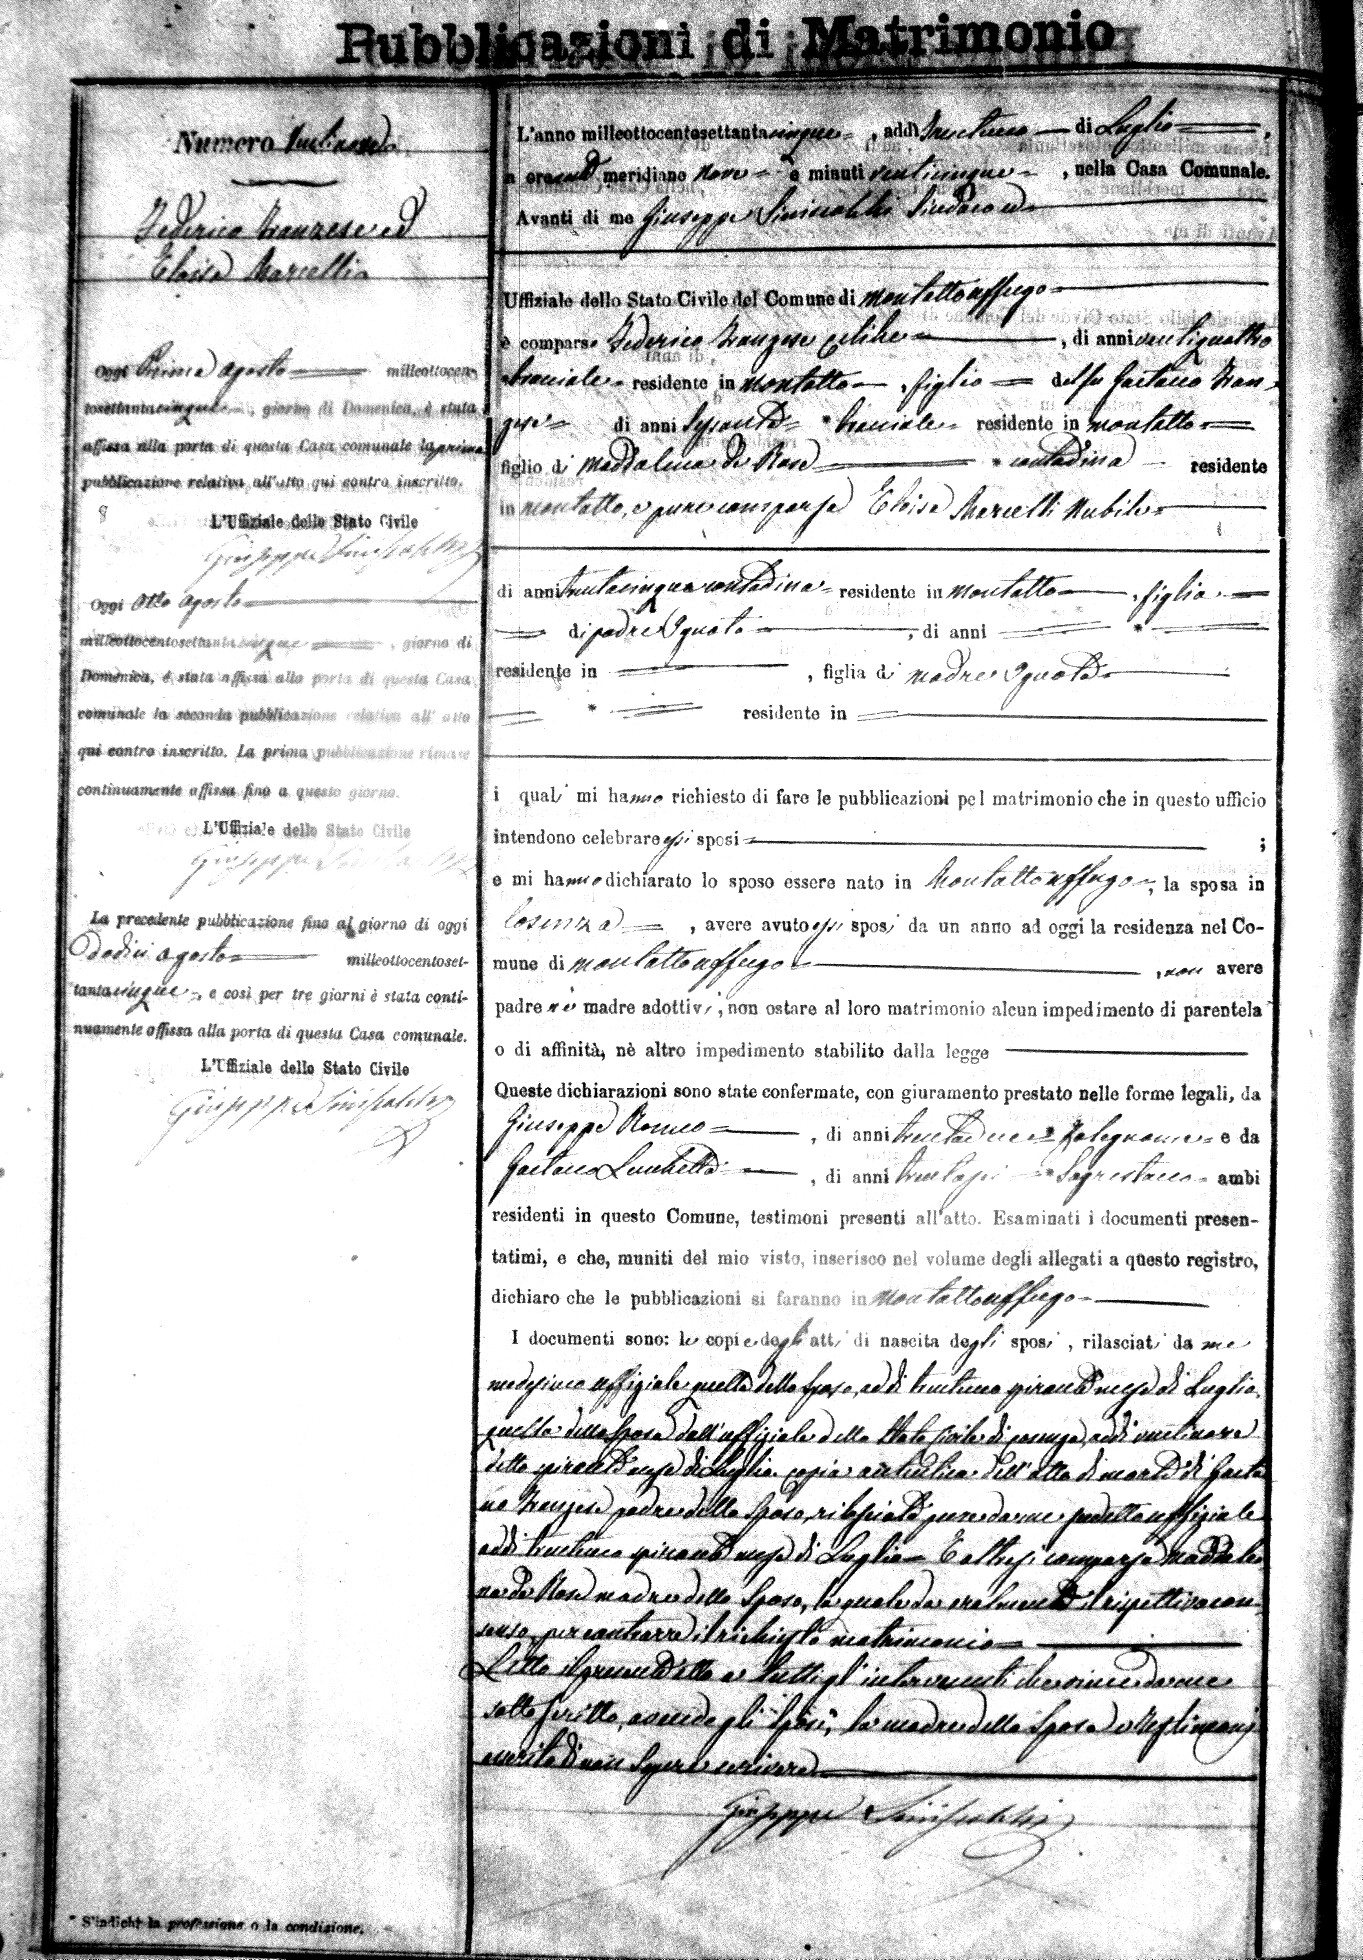 Pubblicazioni di Matrimonio
Numero Ventinove
Federico Franzese ed
Eloisa Marcelli
Oggi Primo agosto millottocen-
tosettantacinque, giorno di Domenica, è stata
affissa alla porta di questa Casa comunale la prima
pubblicazione relativa all'atto qui contro inscritto.
L'Uffiziale dello Stato Civile
Giuseppe
Oggi Otto agosto
millottocentosettantacinque, giorno di
Domenica, è stata affissa alla porta di questa Casa
comunale la seconda pubblicazione relativa all' atto
qui contro inscritto. La prima pubblicazione rimase
continuamente affissa fino a questo giorno.
L'Uffiziale dello Stato Civile
Giuseppe
La precedente pubblicazione fino al giorno di oggi
Dodici agosto milleottocentoset-
tantacinque, e così per tre giorni è stata conti-
nuamente affissa alla porta di questa Casa comunale.
L'Uffiziale dello Stato Civile
Giuseppe
* S'indichi la professione o la condizione.
L'anno milleottocentosettantacinque, addì trentuno di Luglio,
a ore meridiane nove e minuti venticinque, nella Casa Comunale.
Avanti di me Giuseppe Sindaco ed
Uffiziale dello Stato Civile del Comune di Montalto Uffugo
è comparso Federico Franzese celibe, di anni ventiquattro
bracciale residente in Montalto, figlio del fu Gaetano Fran-
zese di anni sessanta * bracciale residente in Montalto
figlio di Maddalena de Rose * contadina residente
in Montalto, e pure comparsa Eloisa Marcelli Nubile
di anni trentacinque contadina residente in Montalto, figlia
di padre Ignoto, di anni *
residente in , figlia di madre Ignota
* residente in
i quali mi hanno richiesto di fare le pubblicazioni pel matrimonio che in questo ufficio
intendono celebrare essi sposi ;
e mi hanno dichiarato lo sposo essere nato in Montalto Uffugo, la sposa in
Cosenza, avere avuto essi sposi da un anno ad oggi la residenza nel Co-
mune di Montalto Uffugo, non avere
padre nè madre adottivi, non ostare al loro matrimonio alcun impedimento di parentela
o di affinità, nè altro impedimento stabilito dalla legge
Queste dichiarazioni sono state confermate, con giuramento prestato nelle forme legali, da
Giuseppe Romeo, di anni trentadue * Falegname e da
Gaetano Lucchetta, di anni trentasei * Sagrestano ambi
residenti in questo Comune, testimoni presenti all'atto. Esaminati i documenti presen-
tatimi, e che, muniti del mio visto, inserisco nel volume degli allegati a questo registro,
dichiaro che le pubblicazioni si faranno in Montalto Uffugo
I documenti sono: le copie degli atti di nascita degli sposi, rilasciati da me
medesimo uffiziale quella dello sposo, addì trentuno spirante mese di Luglio,
quella della sposa dall'uffiziale dello Stato Civile di Cosenza, addì ventinove
dello spirante mese di Luglio. copia autentica dell'atto di morte di Gaeta
no Franzese padre dello sposo, rilasciata pure da me suddetto uffiziale
addì trentuno spirante mese di Luglio E altresì comparsa Maddale
na de Rose madre dello sposo, la quale da oralmente il rispettivo con-
senso, per contrarre il richiesto matrimonio
Letto il presente atto a tutti gl'intervenuti viene da me
sottoscritto, avendo gli sposi, la madre dello sposo e testimoni
asserito di non sapere scrivere
Giuseppe